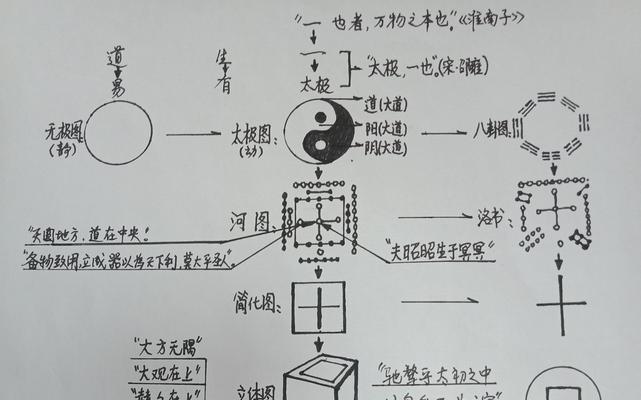 “一也者，万物之本也。”《淮南子》
道
易
生
有
一
太极
“太极，一也”。(宋·邵雍)
无极图：
(静)
太极图：
(动)
道(大道)
阳(大道)
阴(大道)
八卦图：
河图：
洛书：
“天圆地方，道在中央”。
“备物致用，立成器以为天下利，莫大乎圣人”。
“夫昭昭生于冥冥”
简化图：
“大方无隅”
“大观在上”
立体图
“驰骛乎太初之中